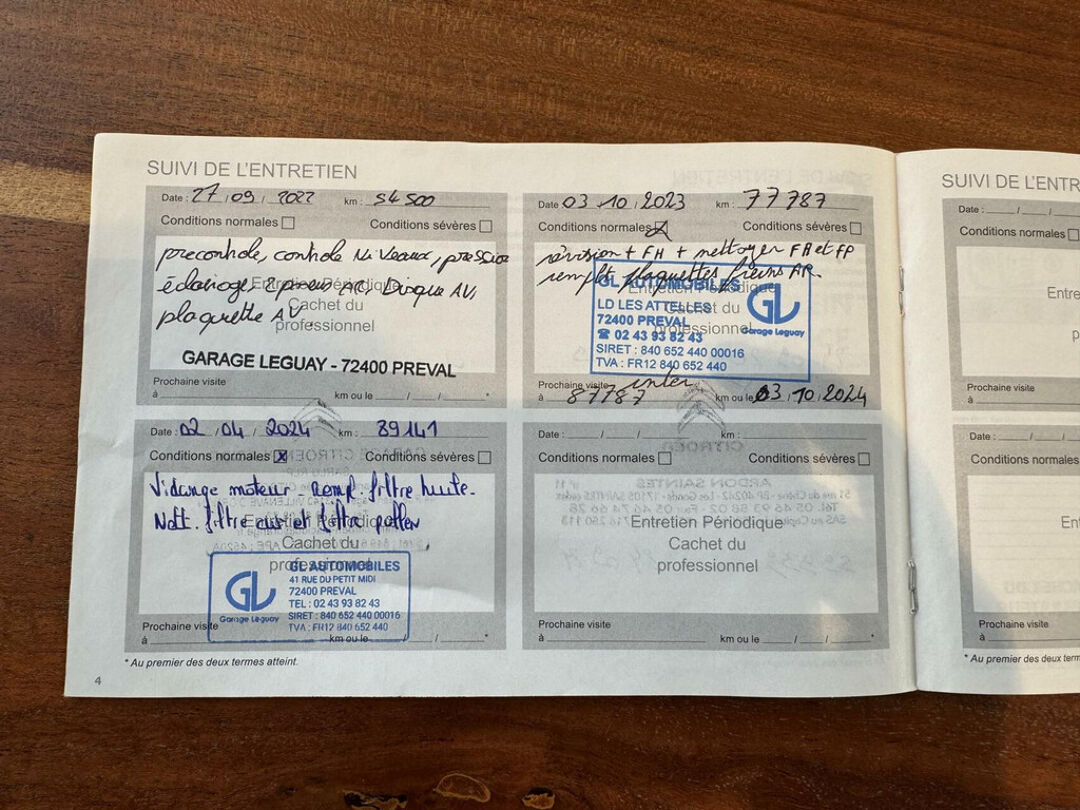 SUIVI DE L'ENTRETIEN
Date : 27 / 09 / 2022 km : 54 500
Conditions normales Conditions sévères
precontrole, controle Niveaux, pression
éclairage 2 pneus AR, Disque AV,
plaquette AV
Entretien Périodique
Cachet du
professionnel
GARAGE LEGUAY - 72400 PREVAL
Prochaine visite
à km ou le / / *
Date 03 / 10 / 2023 km : 77 787
Conditions normales Conditions sévères
révision + FH + nettoyer FA et FP
remplt plaquettes freins AR.
Entretien Périodique
Cachet du
professionnel
GL AUTOMOBILES
LD LES ATTELLES
72400 PREVAL
☎ 02 43 93 82 43
SIRET : 840 652 440 00016
TVA : FR12 840 652 440
GL
Garage Leguay
Prochaine visite inter
à 87787 km ou le 03 / 10 / 2024
Date : 02 / 04 / 2024 km : 89141
Conditions normales x Conditions sévères
Vidange moteur - Remp. filtre huile.
Nett. filtre air et filtre pollen
Entretien Périodique
Cachet du
professionnel
GL
Garage Leguay
GL AUTOMOBILES
41 RUE DU PETIT MIDI
72400 PREVAL
TEL : 02 43 93 82 43
SIRET : 840 652 440 00016
TVA : FR12 840 652 440
Prochaine visite
à km ou le / / *
Date : / / km :
Conditions normales Conditions sévères
Entretien Périodique
Cachet du
professionnel
Prochaine visite
à km ou le / / *
* Au premier des deux termes atteint.
4
SUIVI DE L'ENTR
Date : / /
Conditions normales
Entre
Prochaine visite
à
Date : / /
Conditions normales
Entre
Prochaine visite
à
* Au premier des deux term